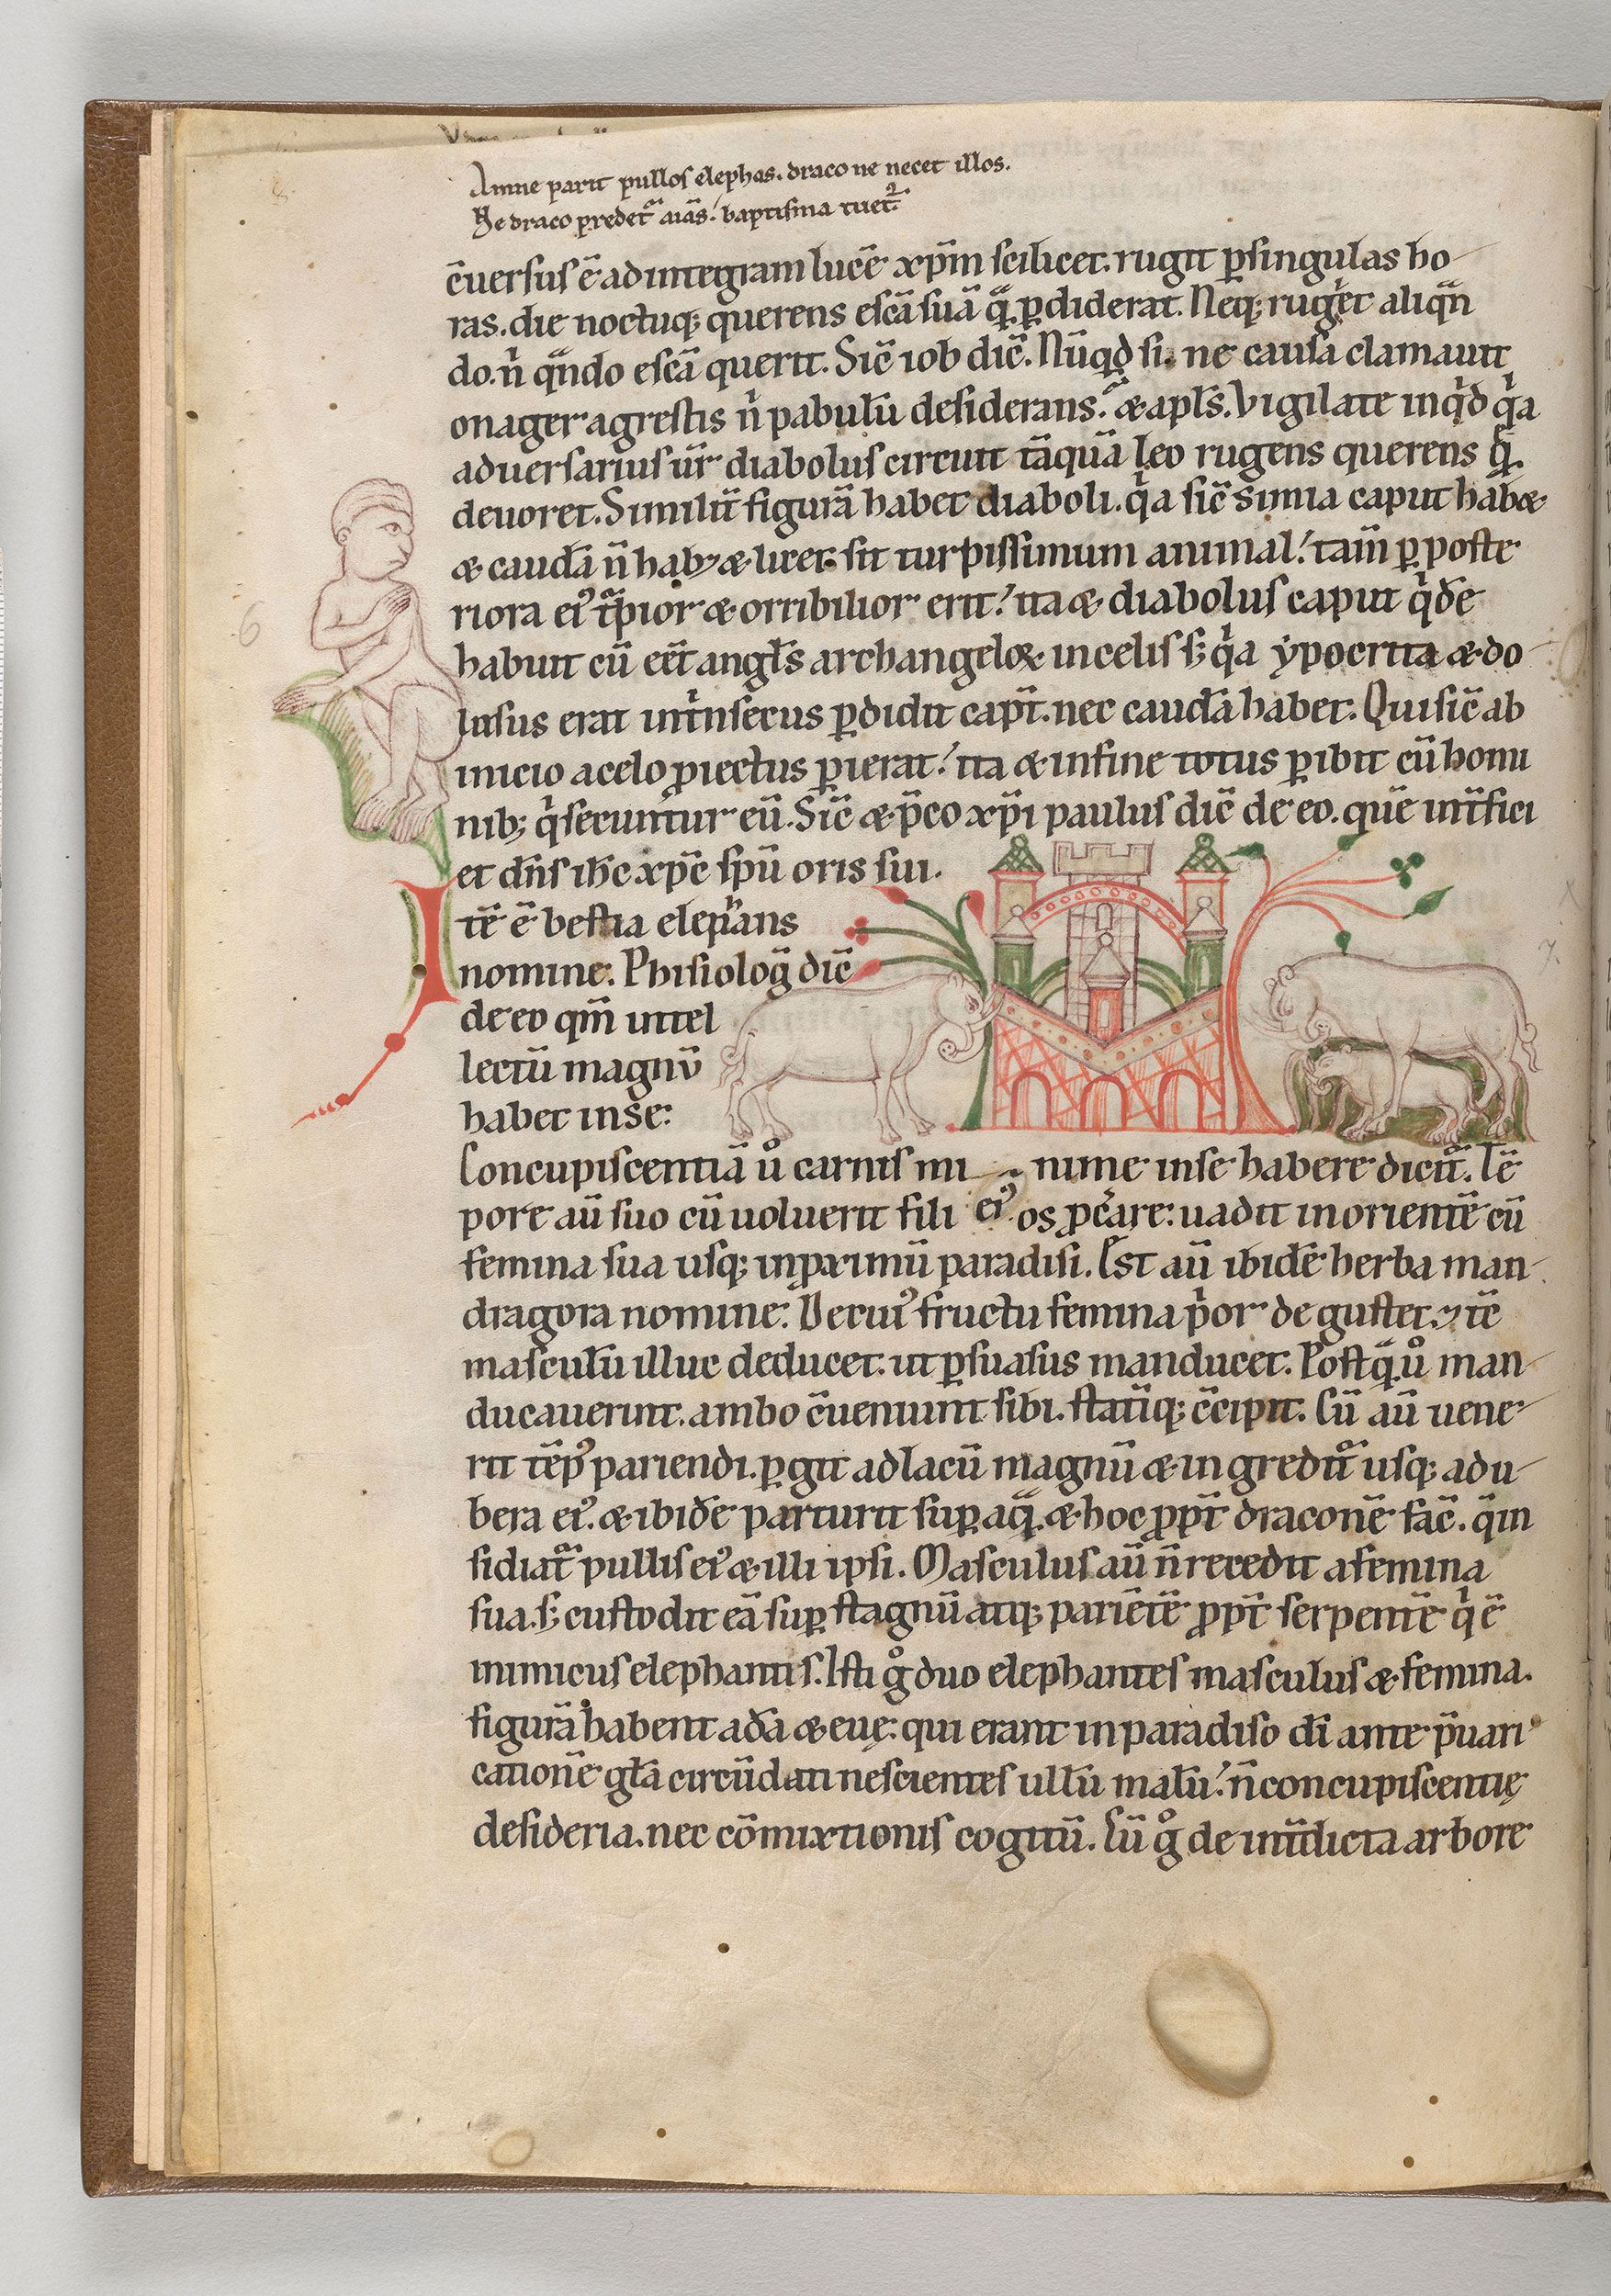 Amne parit pullos elephas. draco ne necet illos.
Ne draco p̄redet᷑ aīas. baptisma tuet᷑.
c̄uersus ē ad integram lucē xp̄m scilicet. rugit ꝑ singulas ho
ras. die noctuq; querens escā suā q̄ ꝑdiderat. Neq; rugiet aliqn̄
do. n̄ qn̄do escā querit. Sic̄ iob dic̄. Nūqd si ne causa clamauit
onager agrestis n̄ pabulū desiderans. & apl̄s. Vigilate inqd qa
aduersarius ūr diabolus circuit tāquā leo rugens querens q̄
deuoret. Similit̄ figurā habet diaboli. qa sic̄ simia caput hab&
& caudā n̄ hab; & licet sit turpissimum animal. tam̄ ꝑ poste
riora eiꝰ tꝑior & orribilior erit. ita & diabolus caput qde
habuit cū eēt angl̄s archangeloꝝ in celis s; qa ypocrita & do
losus erat intnsecus ꝑdidit capt̄. nec caudā habet. Qui sic̄ ab
inicio a celo ꝓiectus ꝑierat. ita & in fine totus ꝑibit cū homi
nib; q secuntur eū. Sic̄ & p̄co xp̄i paulus dic̄ de eo. quē int̄fici
et dn̄s ih̄c xp̄c sp̄u oris sui.
Itē ē bestia elephans
nomine. Phisioloḡ dic̄
de eo qm̄ intel
lectū magnū
habet in se:
Concupiscentiā ů carnis mi nime in se habere dicit᷑. Tē
pore aū suo cū uoluerit fili eiꝰ os ꝓcare: uadit in orientē cū
femina sua usq; in ꝓximū paradisi. Est aū ibidē herba man
dragora nomine. De cuiꝰ fructu femina pior degustet. & tē
masculū illuc deducet. ut ꝑsuasus manducet. Postq̄ ů man
ducauerint. ambo c̄ueniunt sibi. statīq; c̄cipit. Cū aū uene
rit tēpꝰ pariendi. ꝑgit ad lacū magnū & ingredit᷑ usq; ad u
bera eiꝰ. & ibidē parturit suꝑ aq̄. & hoc ꝓpt̄ draconē fac̄. q̄ in
sidiat᷑ pullis eiꝰ & illi ipsi. Masculus aū n̄ recedit a femina
sua. s; custodit eā suꝑ stagnū atq; pariētē ꝓpt̄ serpentē q ē
inimicus elephantis. Isti g̊ duo elephantes masculus & femina.
figurā habent adā & euę. qui erant in paradiso dī ante p̄uari
cationē gl̄a circūdati nescientes ullū malū. n̄ concupiscentię
desideria. nec cōmixtionis cogitū. Cū g̊ de int̄dicta arbore